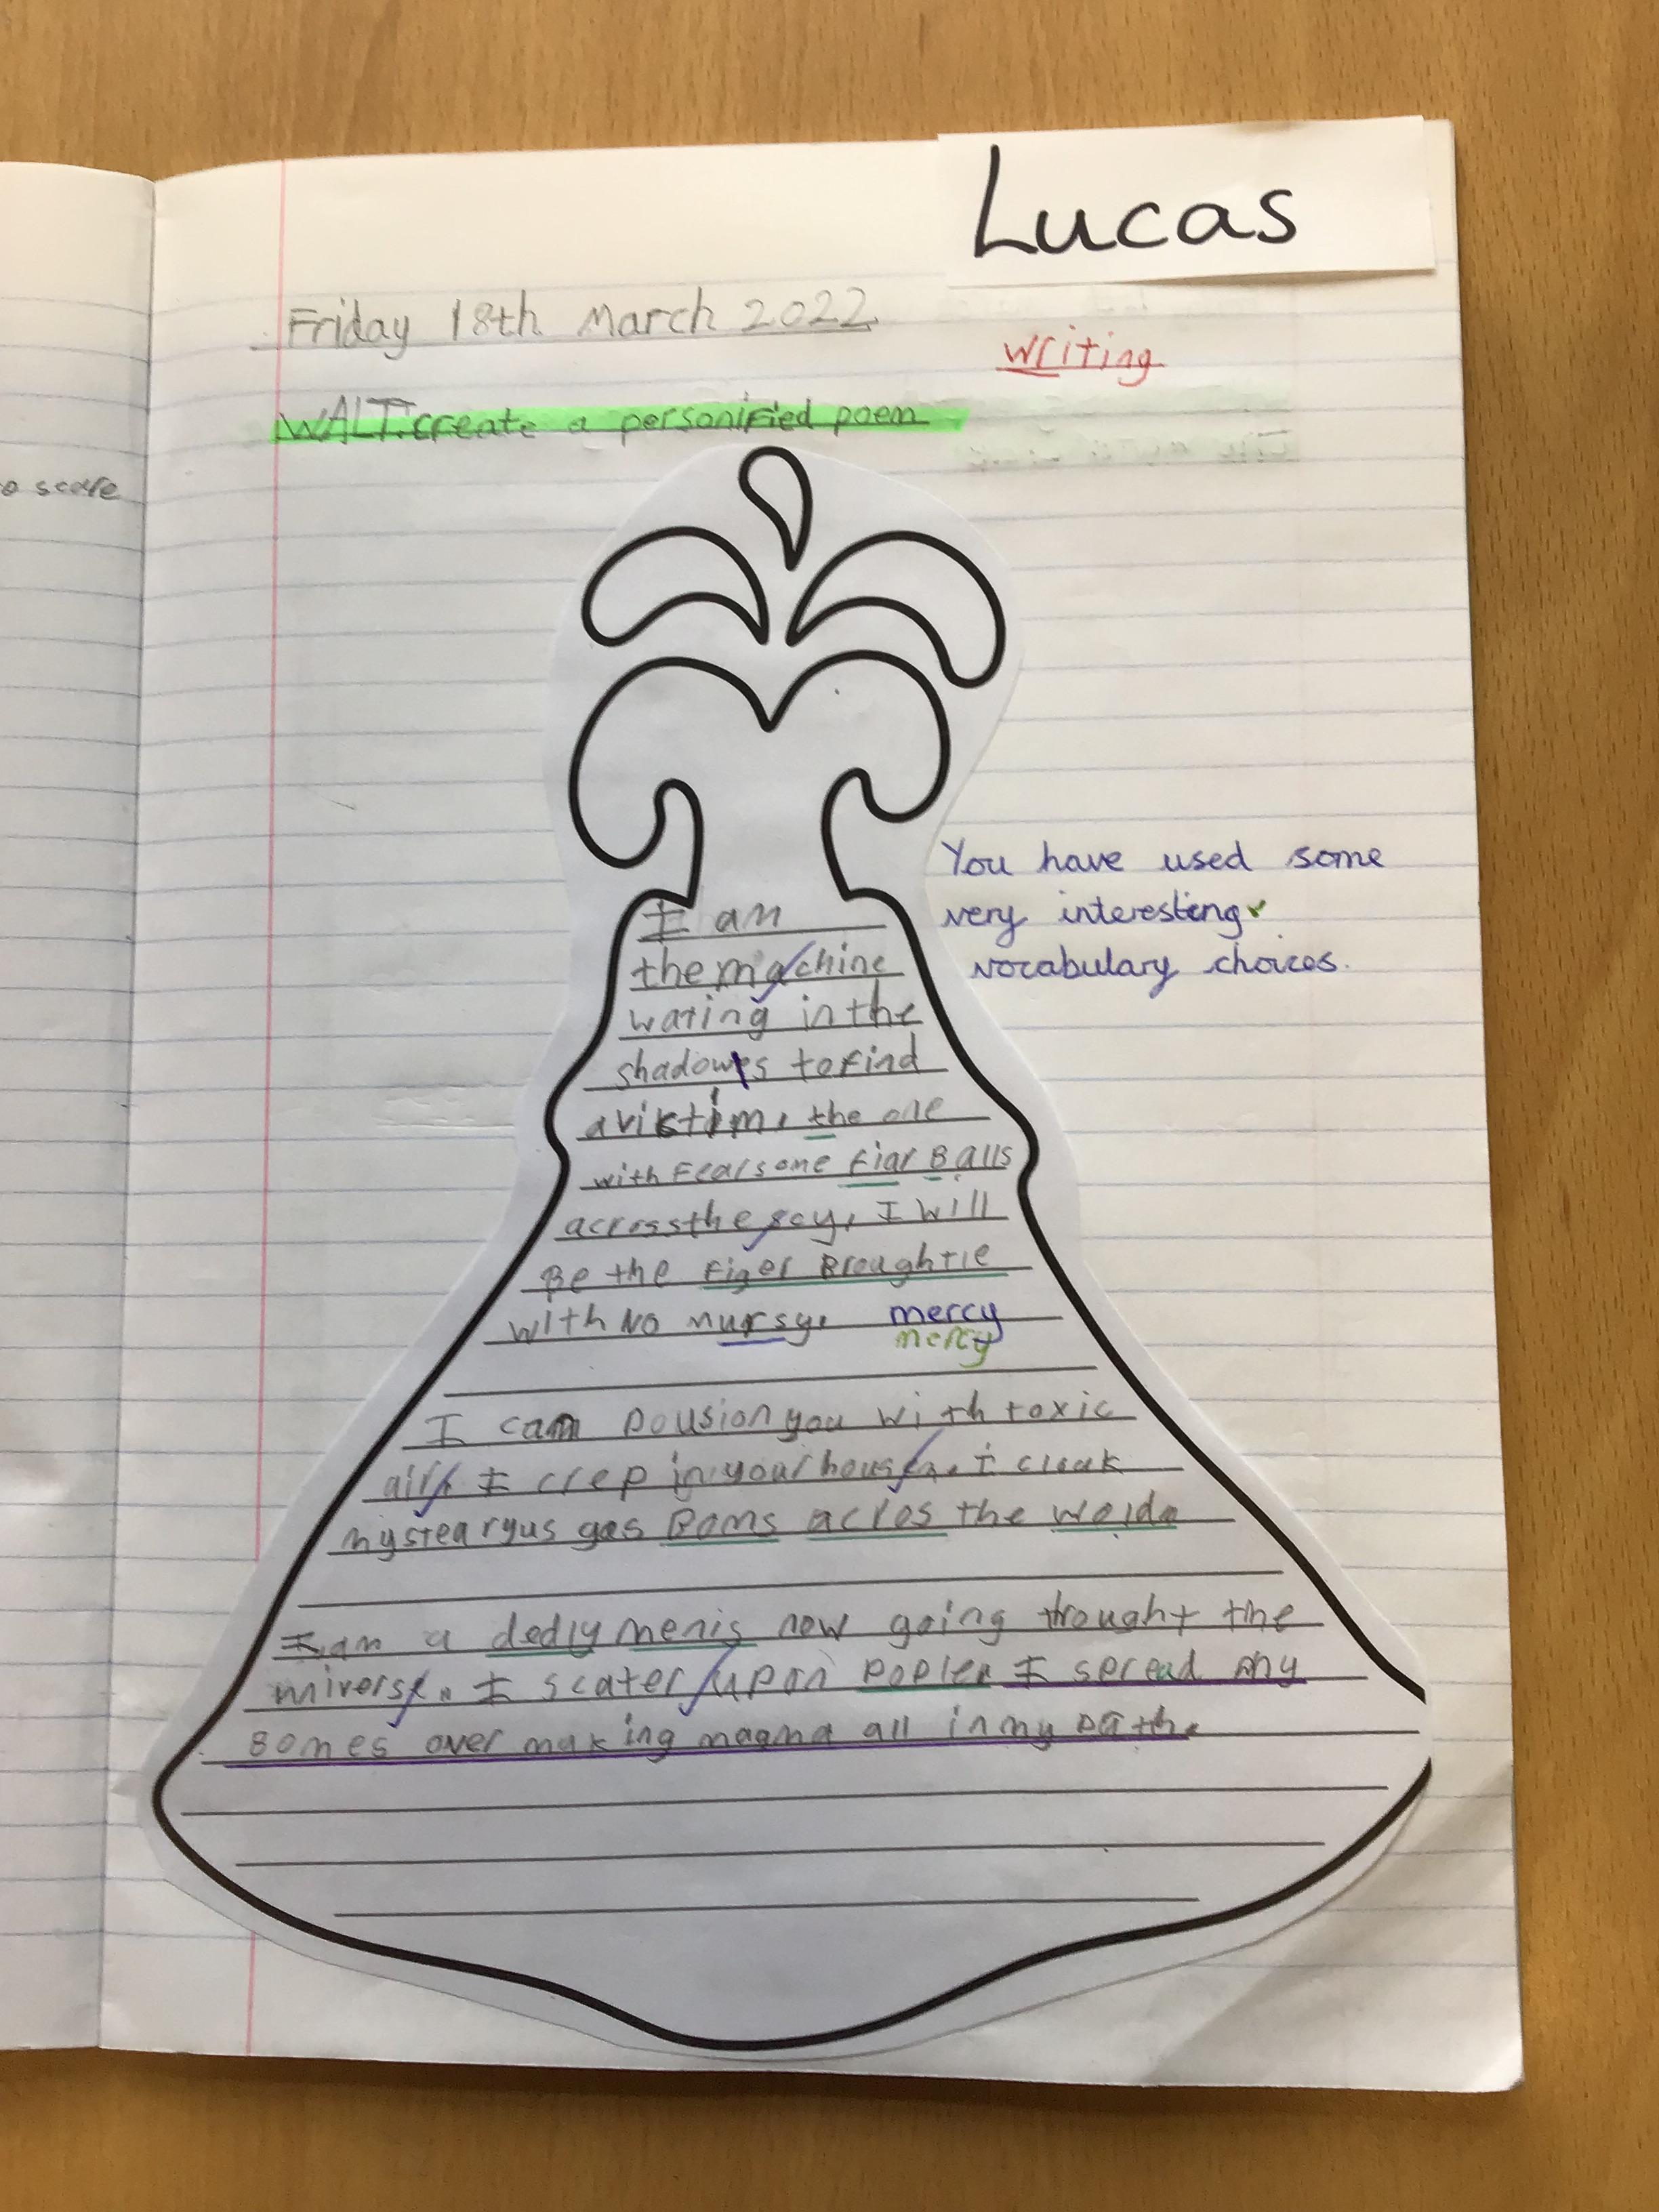 Lucas
Friday 18th March 2022
writing
WALT: create a personified poem
o scare
You have used some
very interesting
vocabulary choices.
I am
the machine
wating in the
shadows to find
a viktim, the one
with Fearsome fiar Balls
across the scy, I will
Be the Figer Broughtie
with No mursy. mercy
mercy
I can pousion you with toxic
air, I crep in your house. I cloak
mystearyus gas Boms acros the world
I am a dedly menis now going throught the
universe. I scater upon popler I spread my
Bones over making magma all in my path.